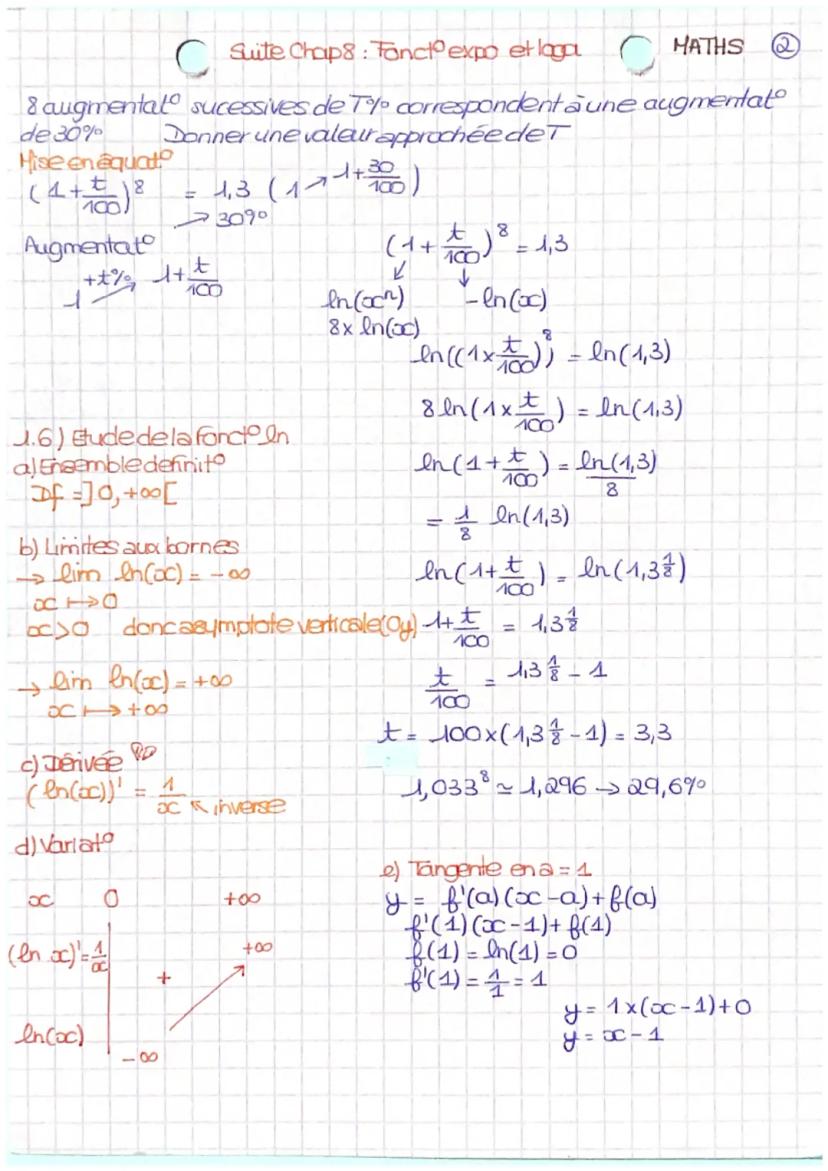 Suite Chap 8 : Fonct° expo et loga MATHS ②
8 augmentat° sucessives de T% correspondent à une augmentat°
de 30% Donner une valeur approchée de T
Mise en équat°
(1 + t/100)⁸ = 1,3 (1 → 1 + 30/100)
→ 30%
Augmentat°
+t%
1 → 1 + t/100
(1 + t/100)⁸ = 1,3
↙ ↓
ln(xⁿ) - ln(x)
8x ln(x)
ln((1 x t/100))⁸ = ln(1,3)
8 ln(1 x t/100) = ln(1,3)
ln(1 + t/100) = ln(1,3)/8
= 1/8 ln(1,3)
ln(1 + t/100) = ln(1,3^1/8)
1 + t/100 = 1,3^1/8
t/100 = 1,3^1/8 - 1
t = 100 x (1,3^1/8 - 1) = 3,3
1,033⁸ ≃ 1,296 → 29,6%
1.6) Etude de la fonct° ln
a) Ensemble definit°
Df = ]0, +∞[
b) Limites aux bornes
→ lim ln(x) = -∞
x ↦ 0
x > 0 donc asymptote verticale (Oy)
→ lim ln(x) = +∞
x ↦ +∞
c) Dérivée
(ln(x))' = 1/x ↖ inverse
d) Variat°
x 0 +∞
(ln x)' = 1/x +
+∞
ln(x)
-∞
e) Tangente en a = 1
y = f'(a)(x - a) + f(a)
f'(1)(x - 1) + f(1)
f(1) = ln(1) = 0
f'(1) = 1/1 = 1
y = 1 x (x - 1) + 0
y = x - 1